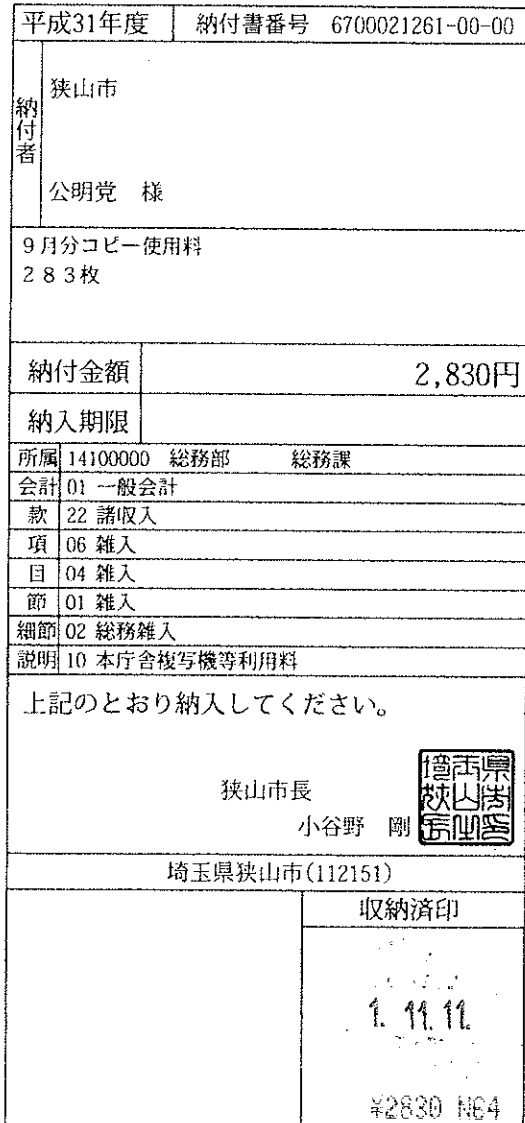 平成31年度 納付書番号 6700021261-00-00
納付者
狭山市
公明党 様
9月分コピー使用料
283枚
納付金額 2,830円
納入期限
所属 14100000 総務部 総務課
会計 01 一般会計
款 22 諸収入
項 06 雑入
目 04 雑入
節 01 雑入
細節 02 総務雑入
説明 10 本庁舎複写機等利用料
上記のとおり納入してください。
狭山市長
小谷野 剛
埼玉県狭山市(112151)
収納済印
1. 11. 11.
¥2830 N64